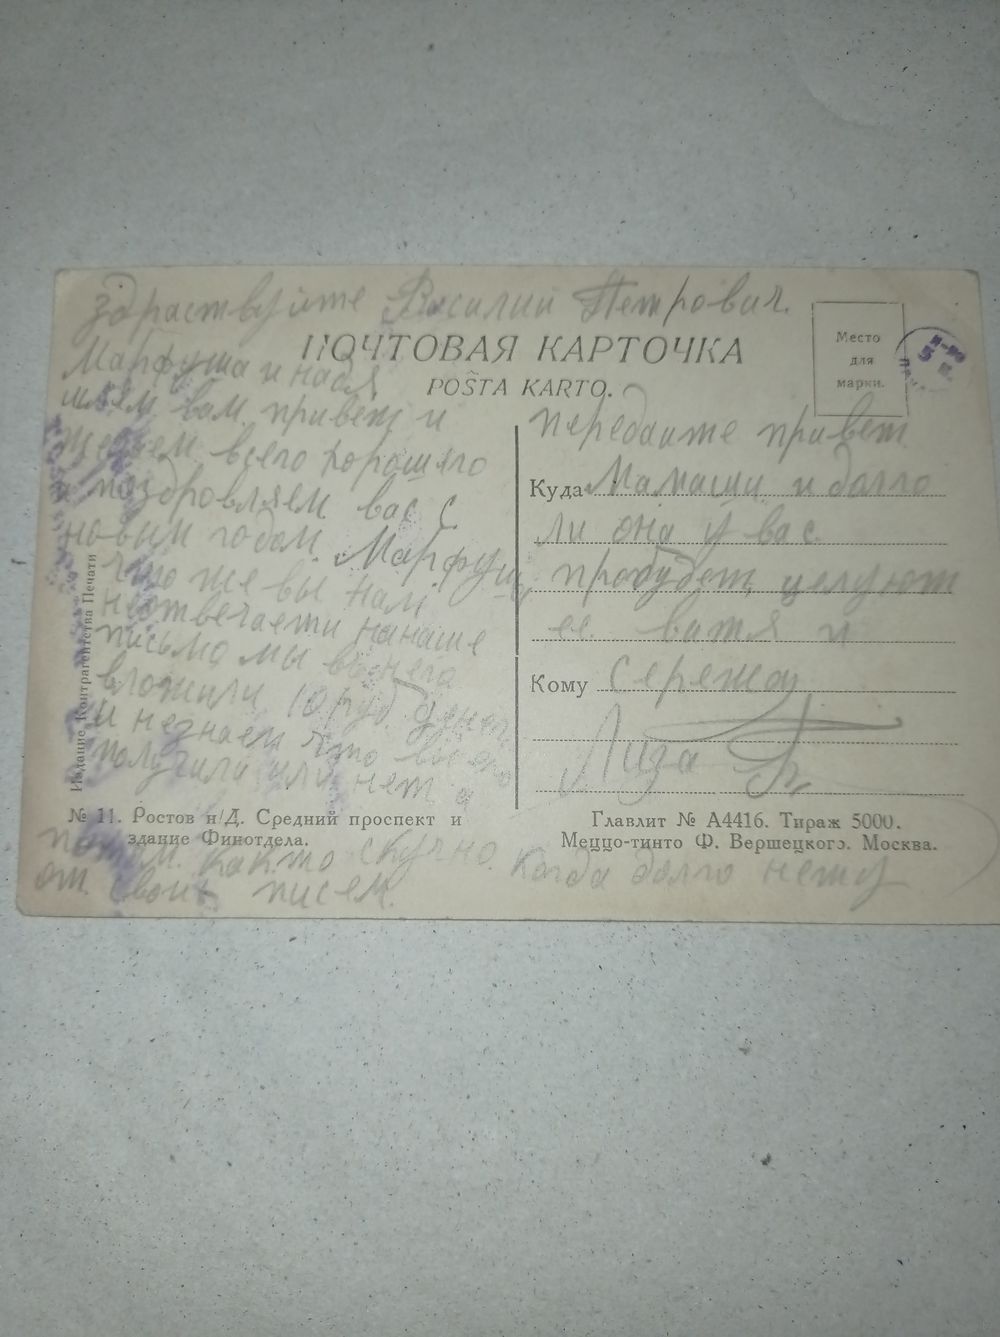 здраствуйте Василий Петрович.
ПОЧТОВАЯ КАРТОЧКА
POŜTA KARTO.
Место
для
марки.
Марфуша и надя
шлем вам привет и
желаем всего хорошего
и поздровляем вас с
новым годом. Марфуша
что же вы нам
неотвечаети нанаше
письмо мы внего
вложили 10 руб денег
и незнаем что вы его
получили или нет а
потом как то скучно когда долго нету
от своих писем.
передайте привет
Куда Мамаши и долго
ли она у вас
пробудет, целуют
ее.ватя и
Кому Сережа
Лиза
Издание Контрагентства Печати
№ 11. Ростов н/Д. Средний проспект и
здание Финотдела.
Главлит № А4416. Тираж 5000.
Меццо-тинто Ф. Вершецкого. Москва.